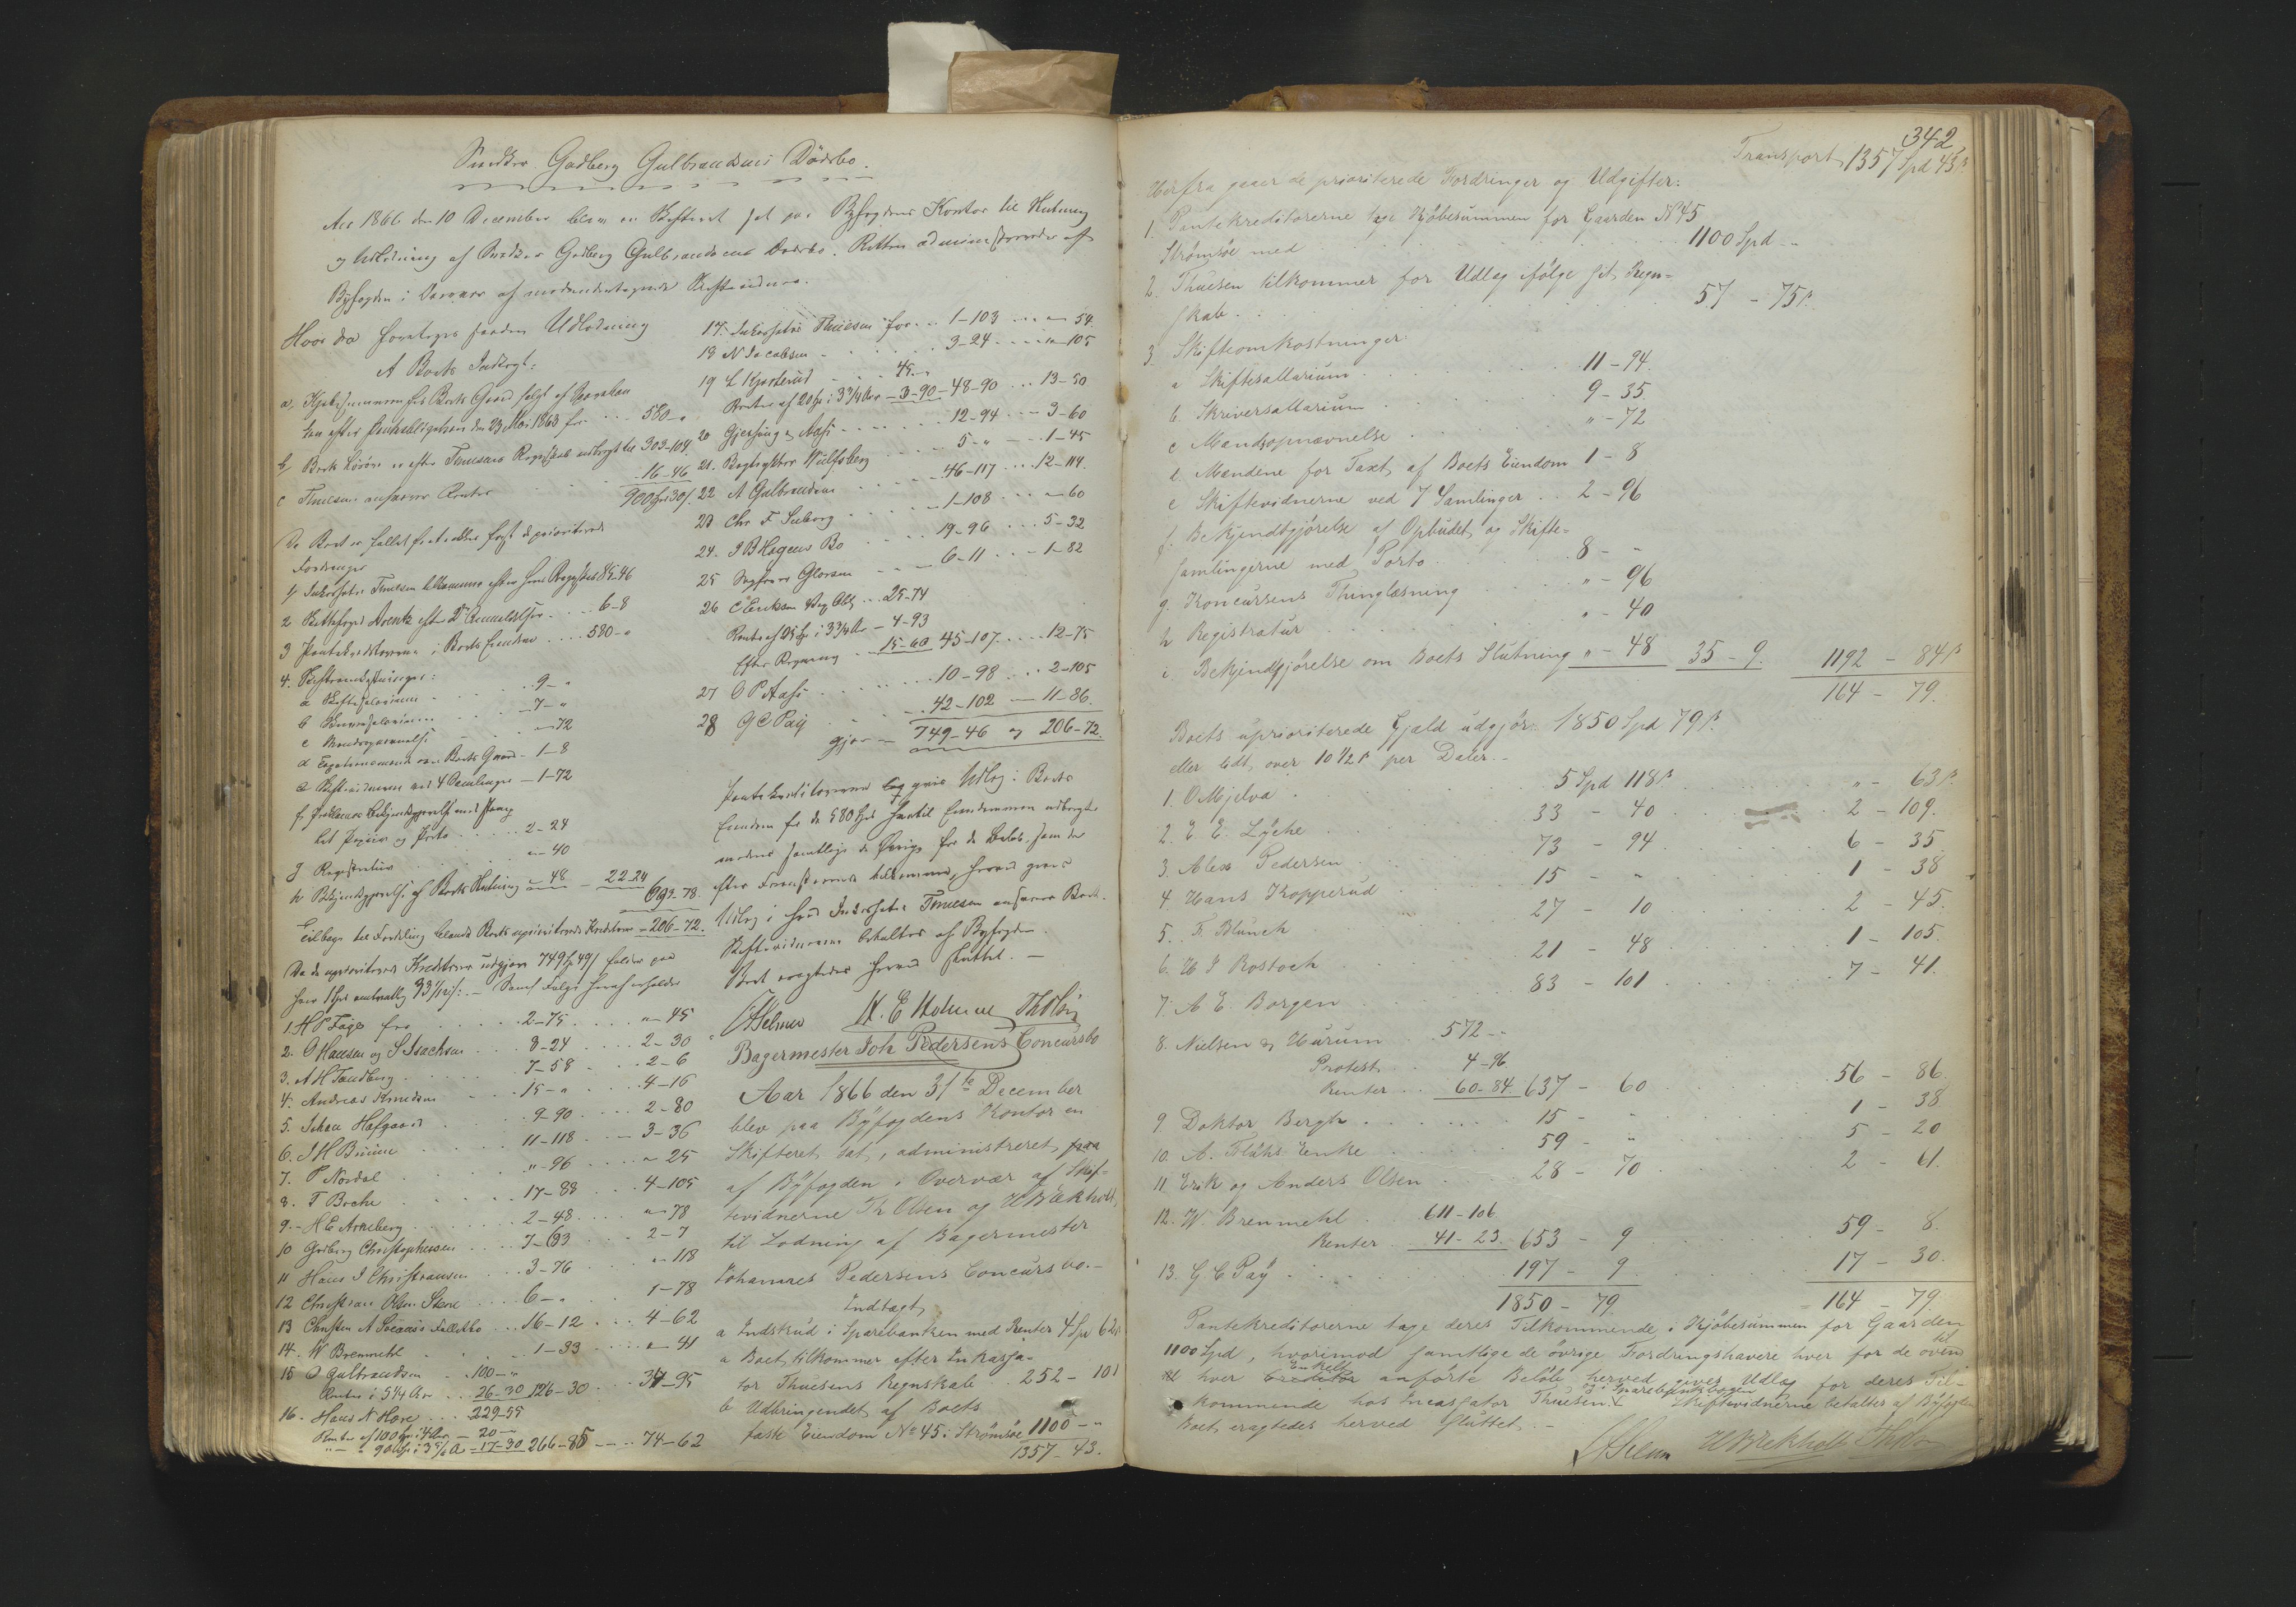 Snedker Gudberg Gulbrandsens Dödsbo.
Aar 1866 den 10 December blev en Skifteret sat paa Byfogdens Kontor til Slutning
og Udlodning af Snedker Gudberg Gulbrandsens Dødsbo. Retten administreredes af
Byfogden i Overvær af medundertegnede Skiftevidner.
Hvor da foretoges saadan Udlodning
A Boets Indtægt:
a, Kjøbesummen for Boets Gaard solgt af
efter Panteobligation den 23 Mai 1863 for 580 - "
b, Boets Løsøre er efter Thuesens Regnskab udbragt til 303-104.
c Thuesen ansvarer Renter 16-46
900 Spd 30 ß.
Da Boet er fallit fratrækkes først de prioriterede
Fordringer
1, Inkassator Thuesen tilkommer efter hans Regnskab 85-46
2 6-8
3 Pantekreditorerne i Boets Eiendom 580 - "
4. Skifteomkostninger:
a Skiftesalarium 9 - "
b Skriversalarium 7 - "
c Mandsopnævnelse " - 72
d Taxationsmænd over Boets Gaard - 1-8
e Skiftevidnerne ved 4 Samlinger - 1-72
f, Proklamas Bekjendtgjørelse med
let Papiir og Porto 2-24
g Registratur " - 40
h Bekjendtgjørelse af Boets Slutning " - 48 22-24
693-78.
Tilbage til Fordeling blandt Boets uprioriterede Kreditorer - 206-72.
Da de uprioriterede Kreditorer udgjøre 749 Spd 46 ß falder paa
hver 1 Spd omtrentlig 33 ß: - Som Følge heraf erholder
1. H P Fager for 2-75 " - 45
2. O Hansen og S Isachsen 8-24 2-30
3. A H Tandberg 7-58 2-6
4. Andreas Knudsen 15 - " 4-16
5. Johan Hafgaard 9-90 2-80
6. J H Bruun 11-118 3-36
7. P Nordal " - 96 " 25
8. F Beche 17-88 4-105
9. H E Arneberg 2-48 " - 78
10 Gudberg Christophersen 7-63 2-7
11 Hans J Christiansen 3-76 " 118
12 Christian Olsen Steen 6 - " 1-78
13 Christen A Svensens Fallitbo 16-12 4-62
14. W Brenmehl 1-33 " 41
15 O Gulbrandsen 100 - "
Renter i 5 1/4 Aar 26-30 126-30 34-95
16. Hans N Hove 229-55
Renter af 100 Spd i 4 Aar - 20 - "
" " 90 Spd i 3 A - 17-30 266-85 74-62
17. Inkassator Thuesen for 1-103 " 54.
18 N Jacobsen 3-24 " 105
19 L Kjosterud 45 - "
Renter af 20 Spd i 3 3/4 Aar - 3-90 - 48-90 13-50
20 Gjersing & Aass 12-94 3-60
21. Bogtrykker Wulfsberg 5 - " 1-45
22 A Gulbrandsen 46-117 12-114.
23 Chr F Siеberg 1-108 " 60
24. J B Hagens Bo 19-96 5-32
25 Glersen 6-11 1-82
26 C Eriksen 25-74
Renter af 25 Spd i 3 3/4 Aar - 4-93
Efter Regning 15-60 45-107 12-75
27 O P Aass 10-98 2-105
28 G C Paÿ 42-102 11-86.
gjør - 749-46 og 206-72.
Pantekreditorerne tog givne Udlæg i Boets
Eiendom for de 580 Spd hvortil Eiendommen udbragtes
medens samtlige de Øvrige for de Beløb, som de
efter Foranstaaende tilkomme, herved gives
Udlæg i hvad Inkassator Thuesen ansvarer Boet.
Skiftevidnerne betaltes af Byfogden.
Boet eragtedes herved sluttet. -
Selmer H. E. Holm
Bagermester Joh Pedersens Concursbo
Aar 1866 den 31te December
blev paa Byfogdens Kontor en
Skifteret sat, administreret
af Byfogden i Overvær af Skif-
tevidnerne Th Olsen og H Brekholt,
til Lodning af Bagermester
Johannes Pedersens Concursbo. -
Indtægt
a Indskud i Sparebanken med Renter 4 Spd 62 ß
a Boet tilkommer efter Inkassa-
tor Thuesens Regnskab 252 - 101
b Udbringendet af Boets
faste Eiendom No 45 i Strömsöe 1100 - "
1357 - 43.
342
Transport 1357 Spd 43 ß.
Herfra gaaer de prioriterede Fordringer og Udgifter:
1. Pantekreditorerne tage Kjöbesummen for Gaarden No 45
Strömsöe med 1100 Spd - "
2. Thuesen tilkommer for Udlæg ifölge sit Regn-
skab 57 - 75 ß.
3. Skifteomkostninger:
a Skiftesallarium 11 - 94.
b. Skriversallarium 9 - 35.
c Mandsopnævnelse " - 72
d. Mændene for Taxt af Boets Eiendom 1 - 8
e Skiftevidnerne ved 7 Samlinger 2 - 96
f. Bekjendtgjörelse af Opbudet og Skifte-
samlingerne med Porto 8 - "
g. Koncursens Thinglæsning " - 96
h Registratur " - 40
i. Bekjendtgjörelse om Boets Slutning " - 48 35 - 9. 1192 - 84 ß
164 - 79.
Boets uprioriterede Gjæld udgjör 1850 Spd 79 ß.
eller lidt over 10 1/2 ß per Daler. -
1. O Mjelva 5 Spd 118 ß " - 63 ß
2. E. E. Lÿche 33 - 40 2 - 109.
3. Alex Pedersen 73 - 94 6 - 35
4. Hans Kopperud 15 - " 1 - 38
5. F. Blunck 27 - 10 2 - 45.
6. H J Rostoch 21 - 48 1 - 105.
7. A E. Borgen 83 - 101 7 - 41.
8. Nielsen & Hurum 572 - "
Protest 4 - 96
Renter 60-84. 637 - 60 56 - 86.
9. Doktor Bergh 15 - " 1 - 38
10. A. Fluhs Enke 59 - " 5 - 20
11 Erik og Anders Olsen 28 - 70 2 - 61.
12. W. Brenmehl 611-106
Renter 41-23. 653 - 9 59 - 8.
13. G C Paÿ 197 - 9. 17 - 30.
1850 - 79. 164 - 79.
Pantekreditorerne tage deres Tilkommende i Kjöbesummen for Gaarden
1100 Spd, hvorimod samtlige de övrige Fordringshavere hver for de oven
til hver Enkelt anförte Belöb herved gives Udlæg for deres Til-
kommende hos Incassator Thuesen og i Sparebankbogen Skiftevidnerne betaltes af Byfogden
Boet eragtedes herved sluttet. -
Selmer H Brekholt